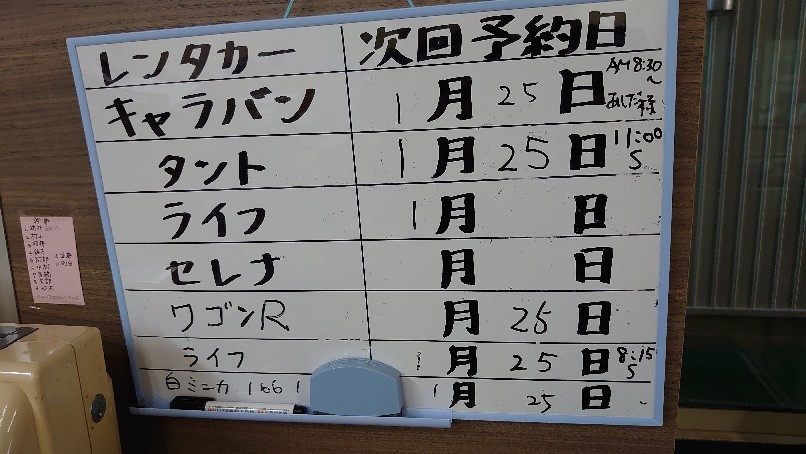 レンタカー 次回予約日
キャラバン 1月25日 AM8:30〜
タント 1月25日 11:00〜
ライフ 1月 日
セレナ 月 日
ワゴンR 月 25日
ライフ 1月25日 8:15〜
白ミニカ 1661 1月25日